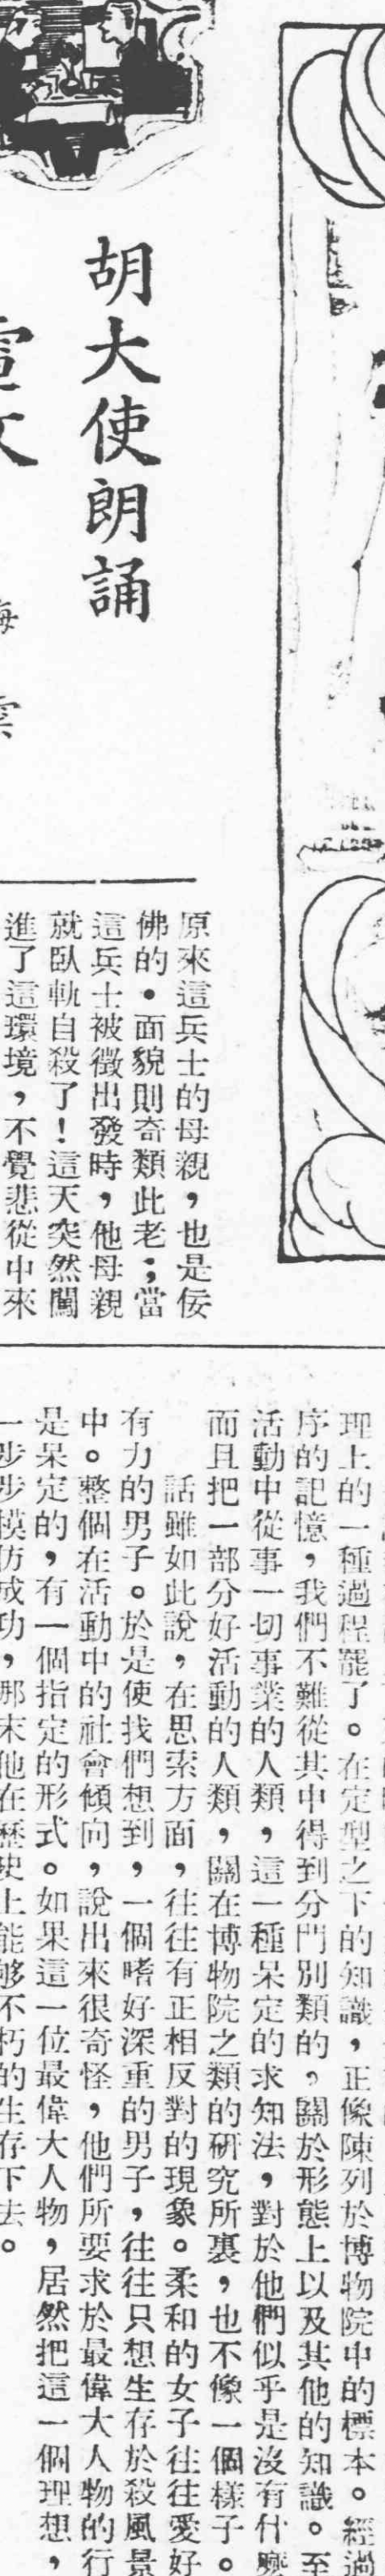 胡大使朗誦
原來這兵士的母親，也是佞
佛的。面貌則奇類此老；當
這兵士被徵出發時，他母親
就臥軌自殺了！這天突然闖
進了這環境，不覺悲從中來
理上的一種過程罷了。在定型之下的知識，正像陳列於博物院中的標本。經過
序的記憶，我們不難從其中得到分門別類的，關於形態上以及其他的知識。至
活動中從事一切事業的人類，這一種呆定的求知法，對於他們似乎是沒有什麼
而且把一部分好活動的人類，關在博物院之類的研究所裏，也不像一個樣子。
話雖如此說，在思索方面，往往有正相反對的現象。柔和的女子往往愛好
有力的男子。於是使找們想到，一個嗜好深重的男子，往往只想生存於殺風景
中。整個在活動中的社會傾向，說出來很奇怪，他們所要求於最偉大人物的行
是呆定的，有一個指定的形式。如果這一位最偉大人物，居然把這一個理想，
一步步模仿成功，那末他在歷史上能够不朽的生存下去。